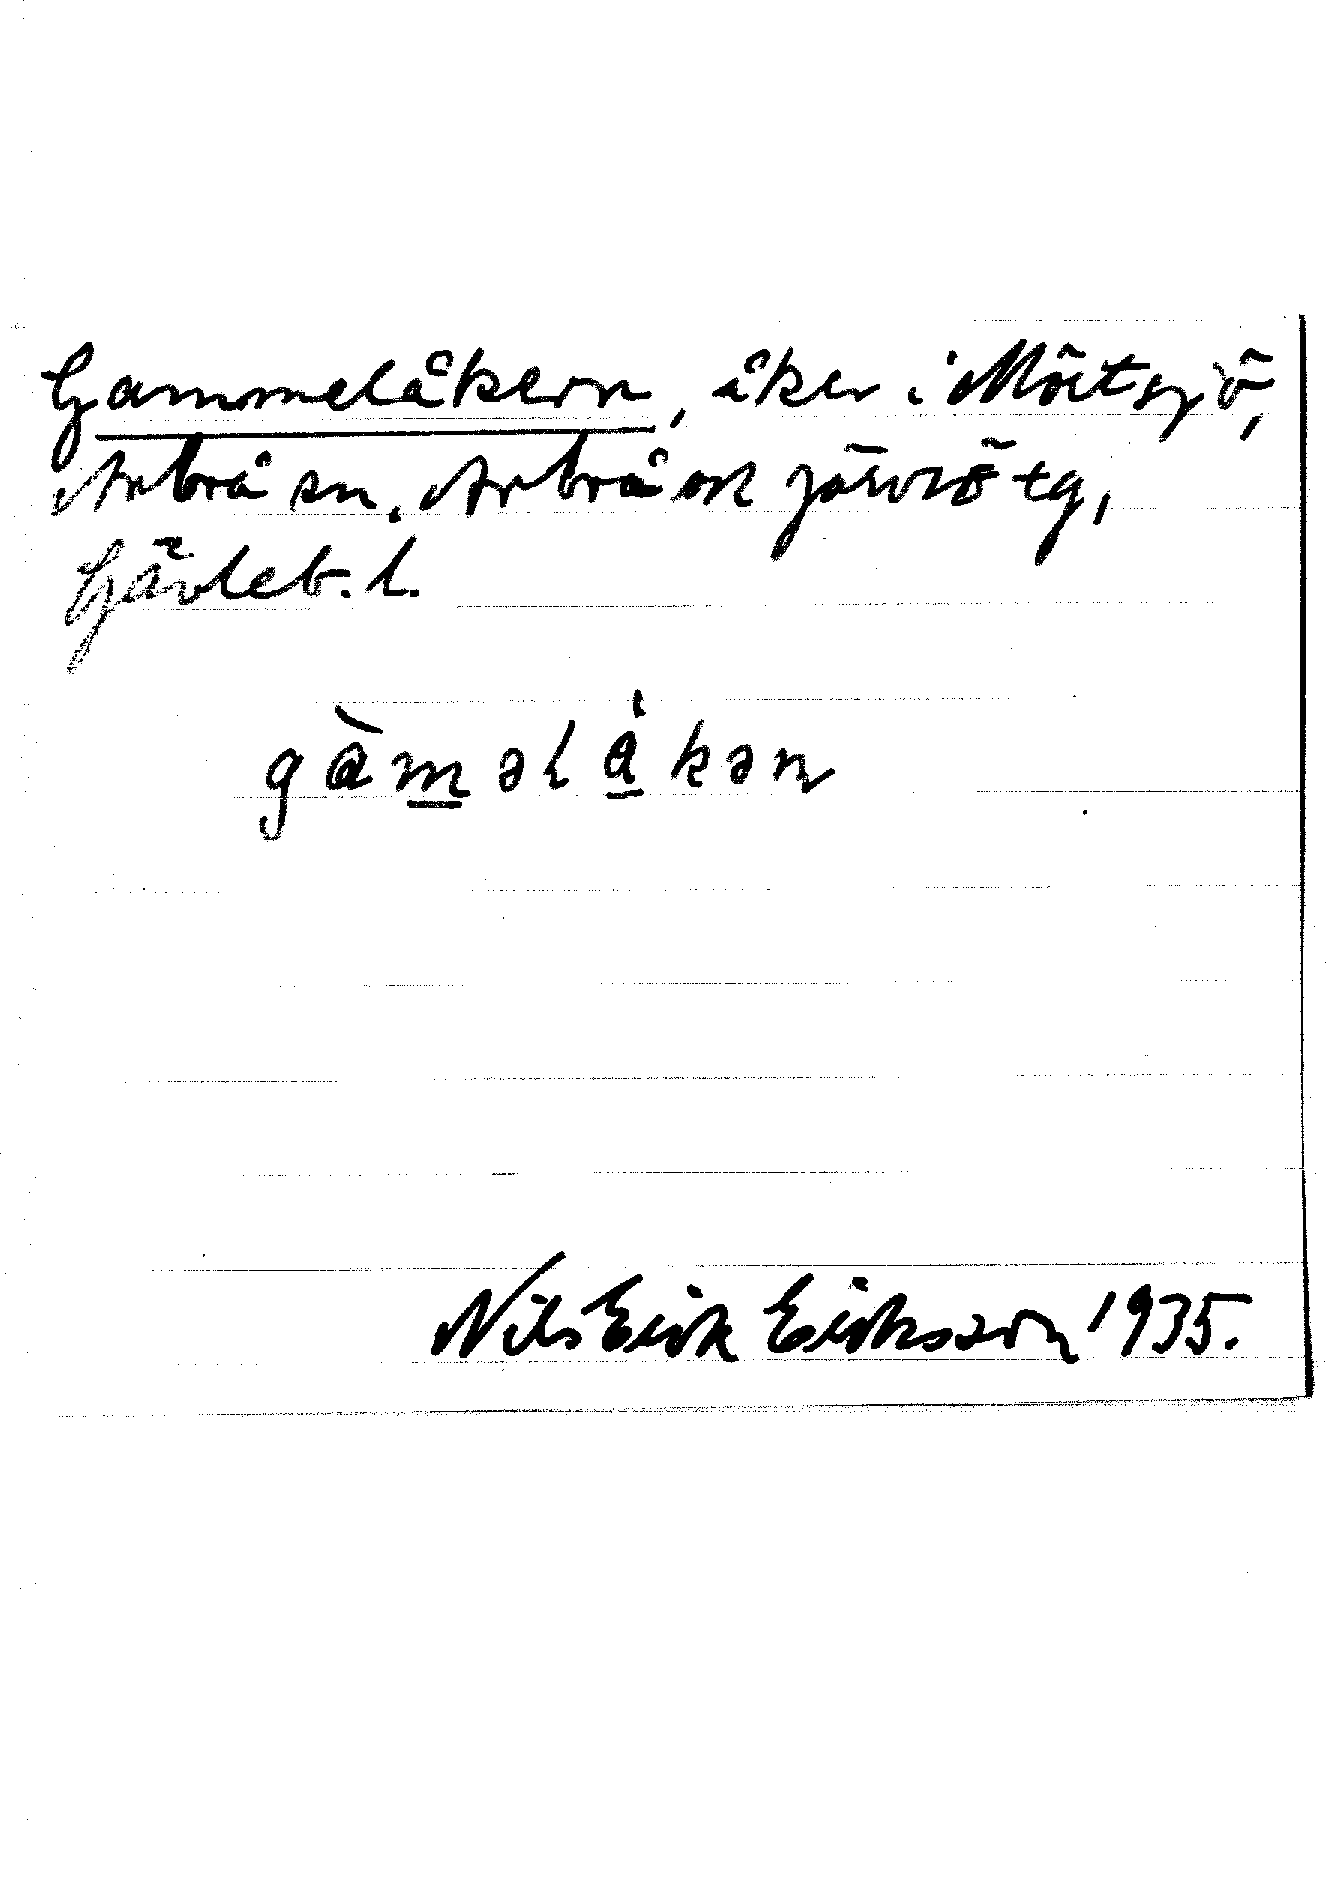 Gammelåkern, åker i Mörtsjö,
Arbrå sn. Arbrå ok järvsö tg,
Gävleb. l.
gàməlåkən
Nils Erik Eriksson 1935.